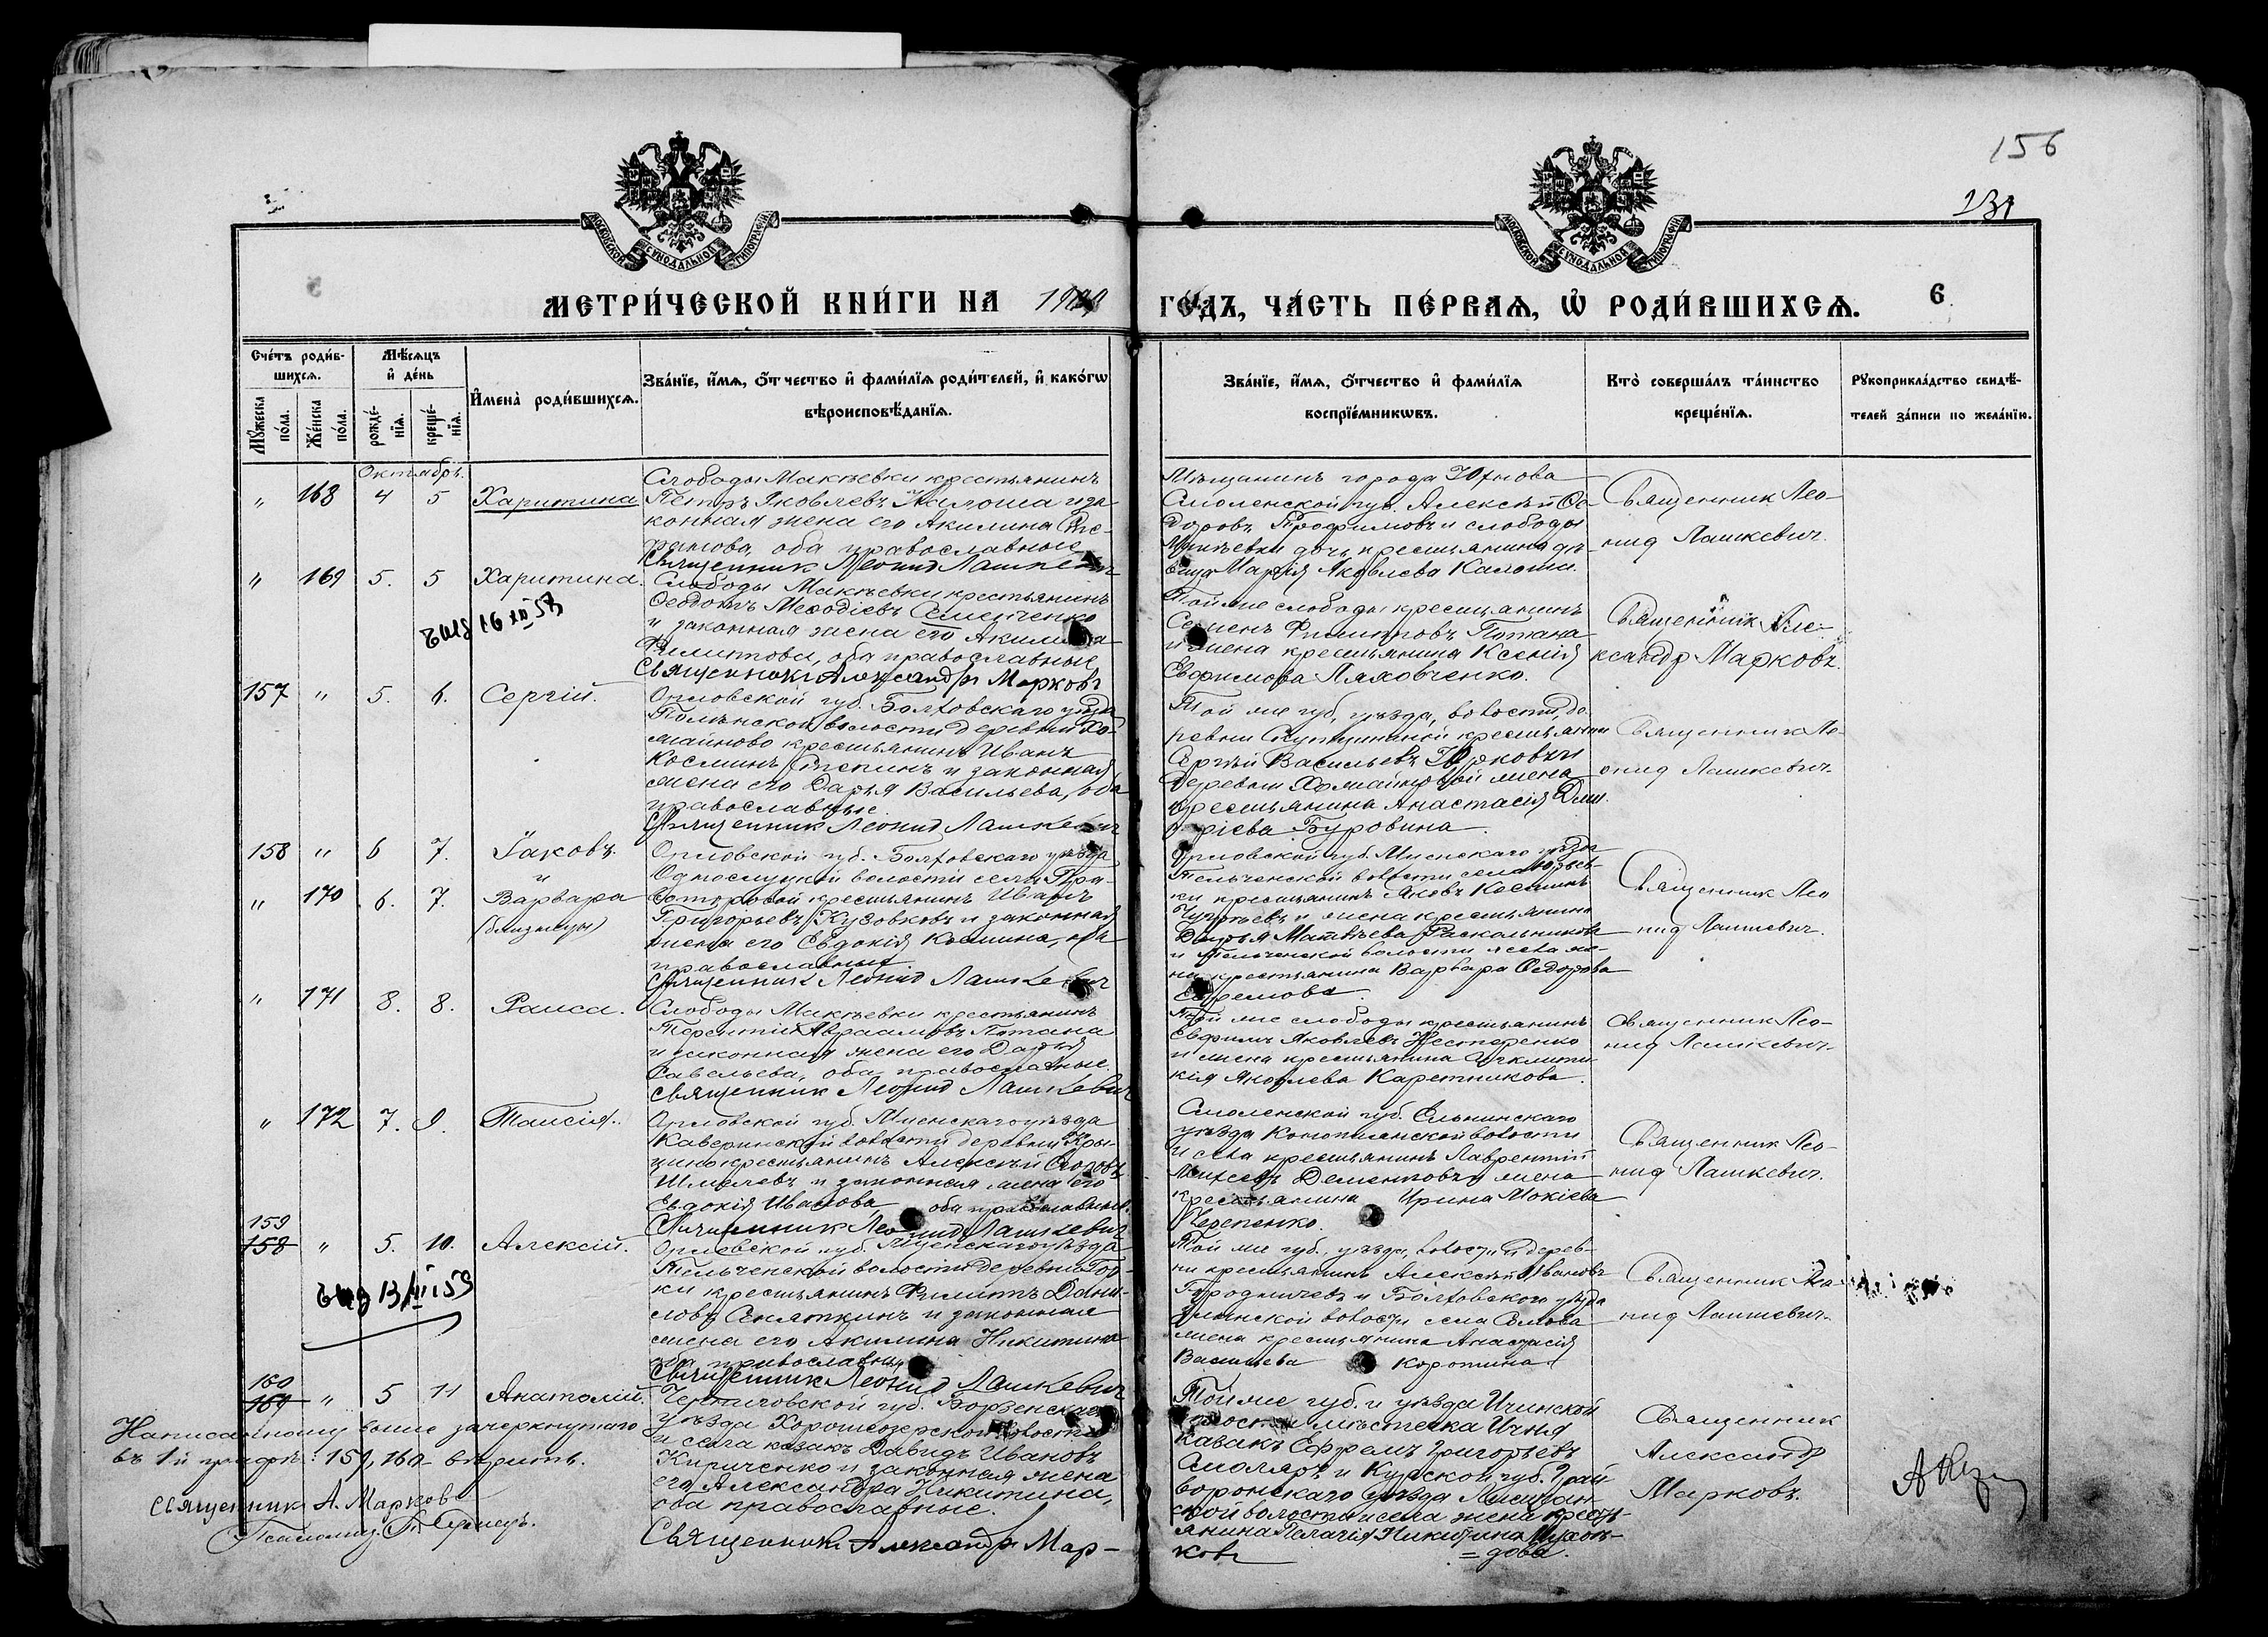 156
131
МОСКОВСКОЙ СУНОДАЛЬНОЙ ТИПОГРАФІИ
МОСКОВСКОЙ СУНОДАЛЬНОЙ ТИПОГРАФІИ
МЕТРИ́ЧЕСКОЙ КНИ́ГИ НА 1909 ГО́ДЪ, ЧА́СТЬ ПЕ́РВАѦ, Ѽ РОДИ́ВШИХСѦ. 6
Счéтъ роди́в-
шихсѧ.
Мꙋ́жеска пóла.
Жéнска пóла.
Мѣ́сѧцъ
и҆ дéнь
рождé-
нїѧ.
крещé-
нїѧ.
И҆мена̀ роди́вшихсѧ.
Звáнїе, и҆́мѧ, ѻ҆́тчество и҆ фами́лїѧ роди́телей, и҆ какóгѡ
вѣроисповѣ́данїѧ.
Звáнїе, и҆́мѧ, ѻ҆́тчество и҆ фами́лїѧ
воспрїéмникѡвъ.
Кто̀ совершáлъ тáинство
крещéнїѧ.
Рꙋкоприклáдство свидѣ́-
телей зáписи по желáнїю.
Октябрь.
" 168 4 5 Харитина
Слободы Макѣевки крестьянинъ
Петръ Яковлевъ Калоша и за
конная жена его Акилина Сте-
фанова, оба православные
Священник Леонид Лашкевич
Мѣщанинъ города Юхнова
Смоленской губ. Алексѣй Ѳе-
доровъ Трофимовъ и слободы
Макѣевки дочь крестьянина дѣ-
вица Марія Яковлева Калоша.
Священник Лео-
нид Лашкевич.
" 169 5. 5 Харитина.
16 XII 53
Слободы Макѣевки крестьянинъ
Ѳеодотъ Меѳодіевъ Семенченко
и законная жена его Акилина
Филиппова, оба православные
Священникъ Александръ Марковъ
Той же слободы крестьянинъ
Семенъ Филипповъ Потана
и жена крестьянина Ксенія
Евфимова Ляховченко.
Священник Але-
ксандр Марковъ.
157 " 5. 6. Сергій.
Орловской губ. Болховскаго уѣзда
волости деревни Хо-
майново крестьянинъ Иванъ
Косминъ и законная
жена его Дарья Васильева, оба
православные.
Священник Леонид Лашкевич
Той же губ, уѣзда, волости, де-
ревни крестьянин
Сергѣй Васильевъ и
деревни жена
крестьянина Анастасія Дми-
тріева Буровина.
Священник Ле-
онид Лашкевич.
158 " 6 7. Іаковъ.
и
" 170 6. 7. Варвара
(близнецы)
Орловской губ. Болховскаго уѣзда
волости села
крестьянинъ Иванъ
Григорьевъ Кузовковъ и законная
жена его Евдокія Космина, оба
православные
Священник Леонид Лашкевич
Орловской губ. Мценскаго уѣзда
Тельченской волости села
крестьянинъ Яковъ Косминъ
и жена крестьянина
Дарья Матвѣева Раскальникова
и Тельченской волости села же-
на крестьянина Варвара Ѳедорова
Ефремова.
Священник Лео
нид Лашкевич.
" 171 8. 8. Раиса.
Слободы Макѣевки крестьянинъ
Терентій Авраамовъ Потана
и законная жена его Дарья
Савельева, оба православные.
Священник Леонид Лашкевич
Той же слободы крестьянинъ
Евфимъ Яковлевъ Нестеренко
и жена крестьянина Синклити-
кія Яковлева Каретникова.
Священник Лео-
нид Лашкевич.
" 172 7. 9. Таисія.
Орловской губ. Мценскаго уѣзда
волости деревни
крестьянинъ Алексѣй
Шмелевъ и законная жена его
Евдокія Иванова, оба православные.
Священник Леонид Лашкевич
Смоленской губ. Ельнинскаго
уѣзда волости
и села крестьянинъ Лаврентій
Дементовъ и жена
крестьянина Ирина Мокіева
Священник Лео-
нид Лашкевич.
159
158 " 5. 10. Алексій.
13 III 53
Орловской губ. Мценскаго уѣзда
Тельченской волости деревни Гор-
ки крестьянинъ Филипъ Дани-
ловъ и законная
жена его Акилина Никитина
оба православные
Священник Леонид Лашкевич
Той же губ., уѣзда, волости и дерев-
ни крестьянинъ Алексѣй Ивановъ
Городничевъ и Болховского уѣзда
волости села
жена крестьянина Анастасія
Васильева Коротина
Священник Лео-
нид Лашкевич.
160
159 " 5 11 Анатолій.
Черниговской губ. Борзенскаго
уѣзда Хорошеозерской волости
и села казакъ Давидъ Ивановъ
Кириченко и законная жена
его Александра Никитина,
оба православные.
Священник Александръ Мар-
ковъ
Той же губ. и уѣзда Ичинской
волости мѣстечка Ичня
казакъ Ефремъ Григорьевъ
Смоляръ и Курской губ. Грай
воронскаго уѣзда
волости и села жена кресть-
янина Пелагія Никитина
Священник
Александр
Марковъ.
Написанному выше зачеркнутаго
въ 1й графѣ: 159, 160 вѣрить.
Священник А. Марковъ
Псаломщ.